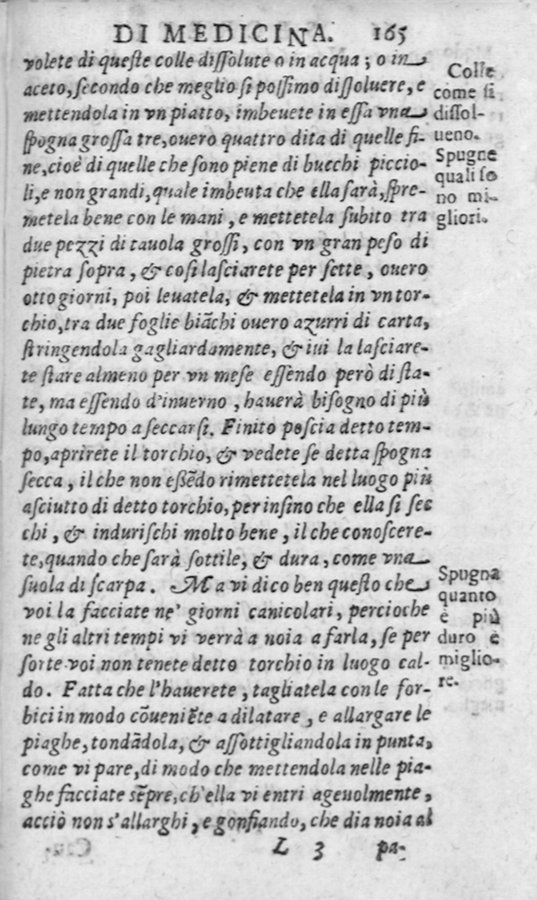 DI MEDICINA. 165
volete di queſte colle diſſolute o in acqua; o in
aceto, ſecondo che meglio ſi poſſimo diſſoluere, e
mettendola in vn piatto, imbeuete in eſſa vna
ſpogna groſſa tre, ouero quattro dita di quelle fi-
ne, cioè di quelle che ſono piene di bucchi piccio-
li, e non grandi, quale imbeuta che ella ſarà, ſpre-
metela bene con le mani, e mettetela ſubito tra
due pezzi di tauola groſſi, con vn gran peſo di
pietra ſopra, & coſi laſciarete per ſette, ouero
otto giorni, poi leuatela, & mettetela in vn tor-
chio, tra due foglie biāchi ouero azurri di carta,
ſtringendola gagliardamente, & iui la laſciare-
te ſtare almeno per vn meſe eſſendo però di ſta-
te, ma eſſendo d'inuerno, hauerà biſogno di più
lungo tempo a ſeccarſi. Finito poſcia detto tem-
po, aprirete il torchio, & vedete ſe detta ſpogna
ſecca, il che non eſſēdo rimettetela nel luogo più
aſciutto di detto torchio, per inſino che ella ſi ſec
chi, & induriſchi molto bene, il che conoſcere-
te, quando che ſarà ſottile, & dura, come vna
ſuola di ſcarpa. Ma vi dico ben queſto che
voi la facciate ne' giorni canicolari, percioche
ne gli altri tempi vi verrà a noia a farla, ſe per
ſorte voi non tenete detto torchio in luogo cal-
do. Fatta che l'hauerete, tagliatela con le for-
bici in modo cōueniēte a dilatare, e allargare le
piaghe, tondādola, & aſſottigliandola in punta,
come vi pare, di modo che mettendola nelle pia-
ghe facciate ſēpre, ch'ella vi entri ageuolmente,
acciò non s'allarghi, e gonfiando, che dia noia al
L 3 pa-
Colle
come ſi
diſſol-
ueno.
Spugne
quali ſo
no mi-
gliori.
Spugna
quanto
è più
duro è
miglio-
re.